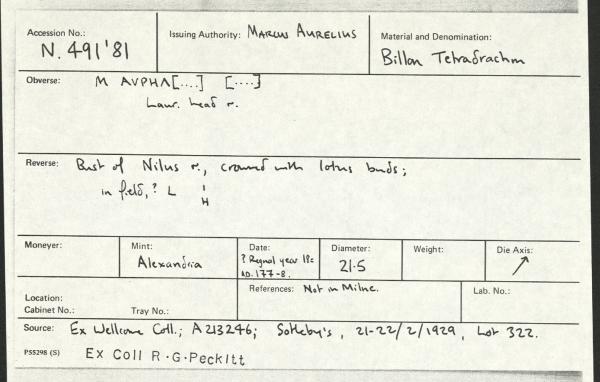 Accession No.: Issuing Authority: MARCUS AURELIUS Material and Denomination:
N. 491'81 Billon Tetradrachm
Obverse: M AVPHΛ[....] [....]
Laur. head r.
Reverse: Bust of Nilus r., crowned with lotus buds;
in field, ? L I
H
Moneyer: Mint: Date: Diameter: Weight: Die Axis:
Alexandria ? Regnal year 18 = 21.5 ↗
AD. 177-8.
References: Not in Milne. Lab. No.:
Location:
Cabinet No.: Tray No.:
Source: Ex Wellcome Coll.; A213246; Sotheby's, 21-22/2/1929, Lot 322.
PS5298 (S) Ex Coll R.G.Peckitt